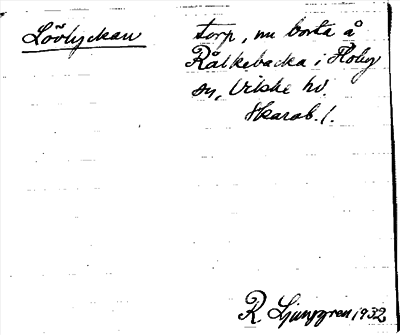 Lövlyckan
torp, nu borta å
Rålkebacka i Floby
sn, Vilske hd.
Skarab. l.
R. Ljunggren 1932